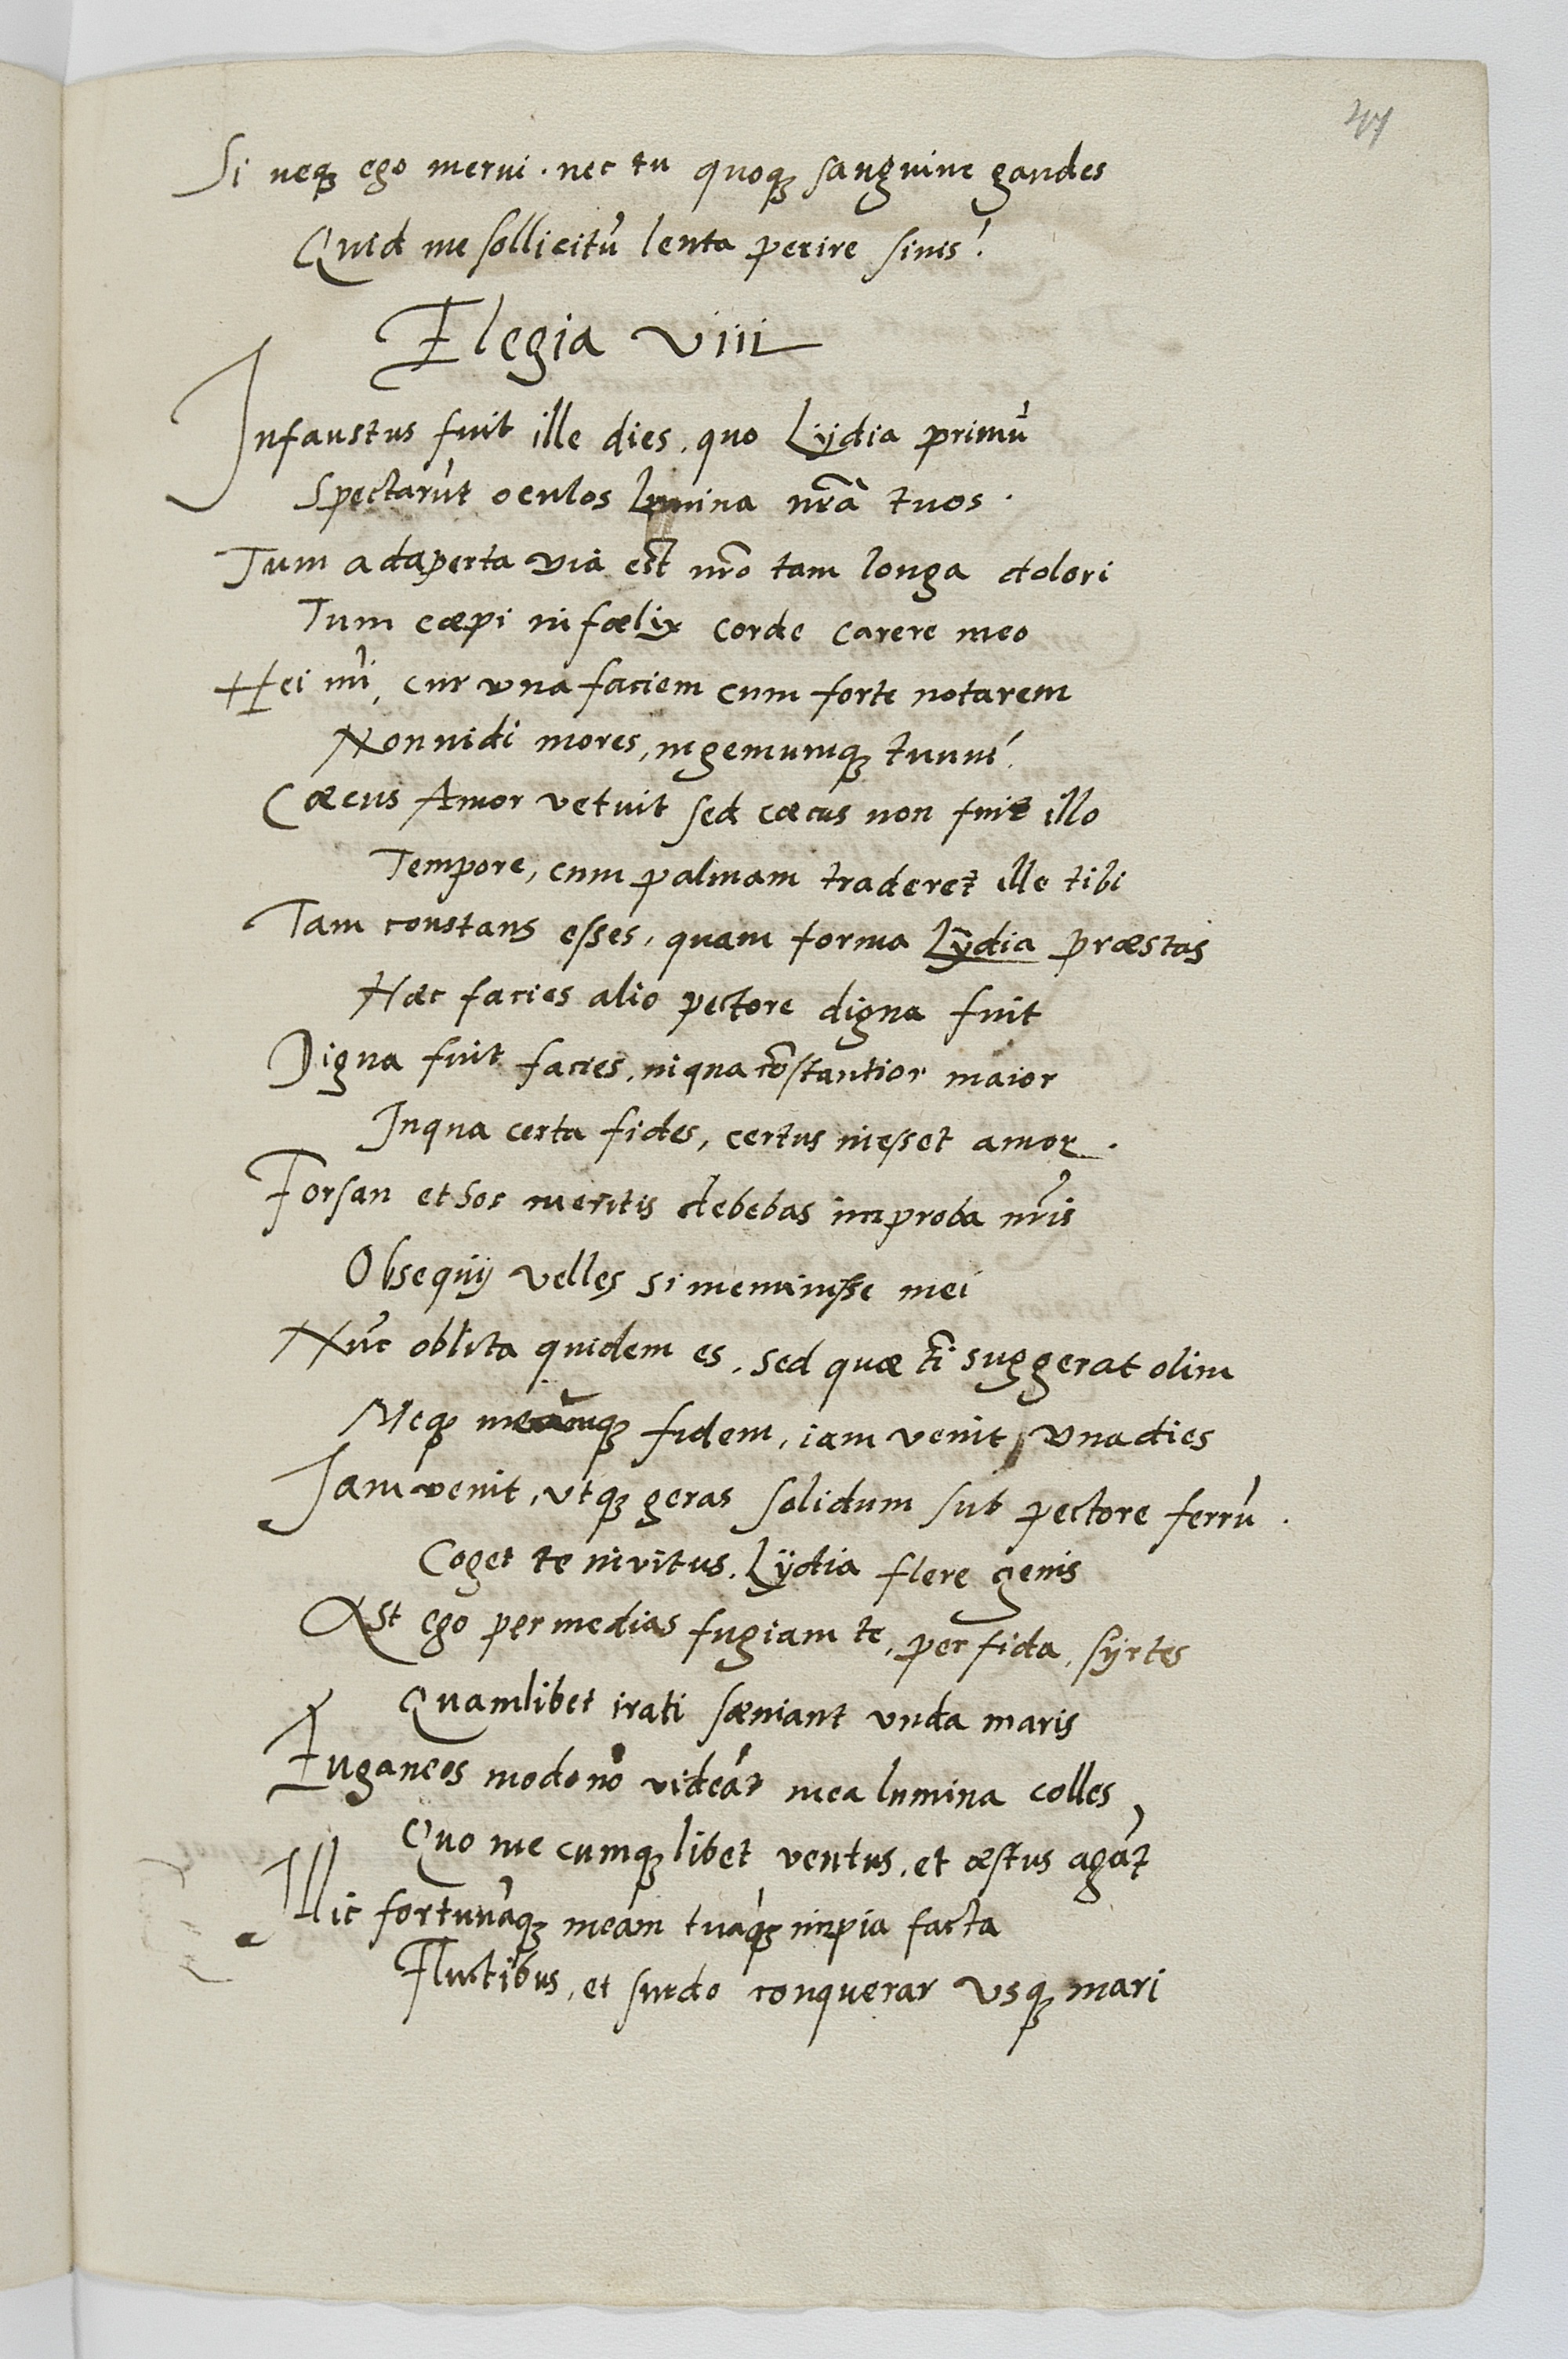 47
Si neqꝫ ego merui . nec tu quoqꝫ sanguine gaudes
Quid me sollicitū lenta perire sinis!
Elegia viii
Infaustus fuit ille dies, quo Lÿdia primū
Spectarūt oculos lumina nrā tuos .
Tum adaperta via est nrō tam longa dolori
Tum cæpi infœlix corde carere meo
Hei mī, cur una faciem cum forte notarem
Non vidi mores, ingeniumqꝫ tuum!
Cæcus Amor vetuit sed cæcus non fuit illo
Tempore, cum palmam traderet ille tibi
Tam constans esses, quam forma Lÿdia præstas
Hæc facies alio pectore digna fuit
Digna fuit facies, in qua cōstantior maior
In qua certa fides, certus inesset amor .
Forsan et hoc meritis debebas improba nrīs
Obsequij velles si meminisse mei
Nūc oblita quidem es, sed quæ tī suggerat olim
Meqꝫ meamqꝫ fidem, iam venit una dies
Iam venit, utqꝫ geras solidum sub pectore ferrū .
Coget te invitus, Lÿdia flere genis
Ast ego per medias fugiam te, perfida, sÿrtes
Quamlibet irati sæviant unda maris
Euganeos modo nō videāt mea lumina colles,
Quo me cumqꝫ libet ventus, et æstus agāt
Illic fortunāqꝫ meam tuāqꝫ impia facta
Fluctibus, et surdo conquerar usqꝫ mari